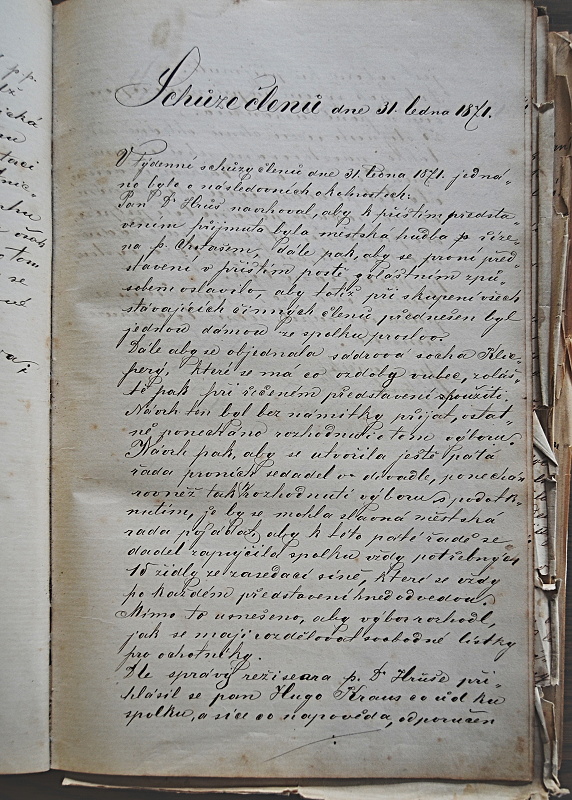 Schůze členů dne 31. ledna 1871.
V týdenní schůzy členů dne 31. ledna 1871. jedná-
no bylo o následovních okolnostech:
Pan Dr Hruš navrhoval, aby k příštím předsta-
vením přijmuta byla městská hudba p. říze-
na p. dále pak, aby se první před-
stavení v příštím postě zvláštním způ-
sobem oslavilo, aby totiž při skupení všech
stávajících činných členů přednešen byl
jednou dámou ze spolku proslov.
Dále aby se objednala sádrová socha Klic-
pery, které se má co ozdoby vubec, zvláš-
tě pak při řečeném představení použíti.
Návrh ten byl bez námitky přijat, ostat-
ně ponecháno rozhodnutí o tom výboru.
Návrh pak, aby se utvořila ještě pátá
řada prvních sedadel v divadle, ponechán
rovněž tak rozhodnutí výboru s podot-
knutím, že by se mohla slavná městská
rada požádat, aby k této páté řadě se-
dadel zapůjčila spolku vždy potřebných
15 židlý ze zasedací síně, které se vždy
po každém představení hned odvedou.
Mimo to usnešeno, aby výbor rozhodl,
jak se mají rozdělovat svobodné lístky
pro ochotníky.
Dle správy režiseara p. Dr Hruše při-
hlásil se pan Hugo Kraus co úd ku
spolku, a sice co napověda, odporučen